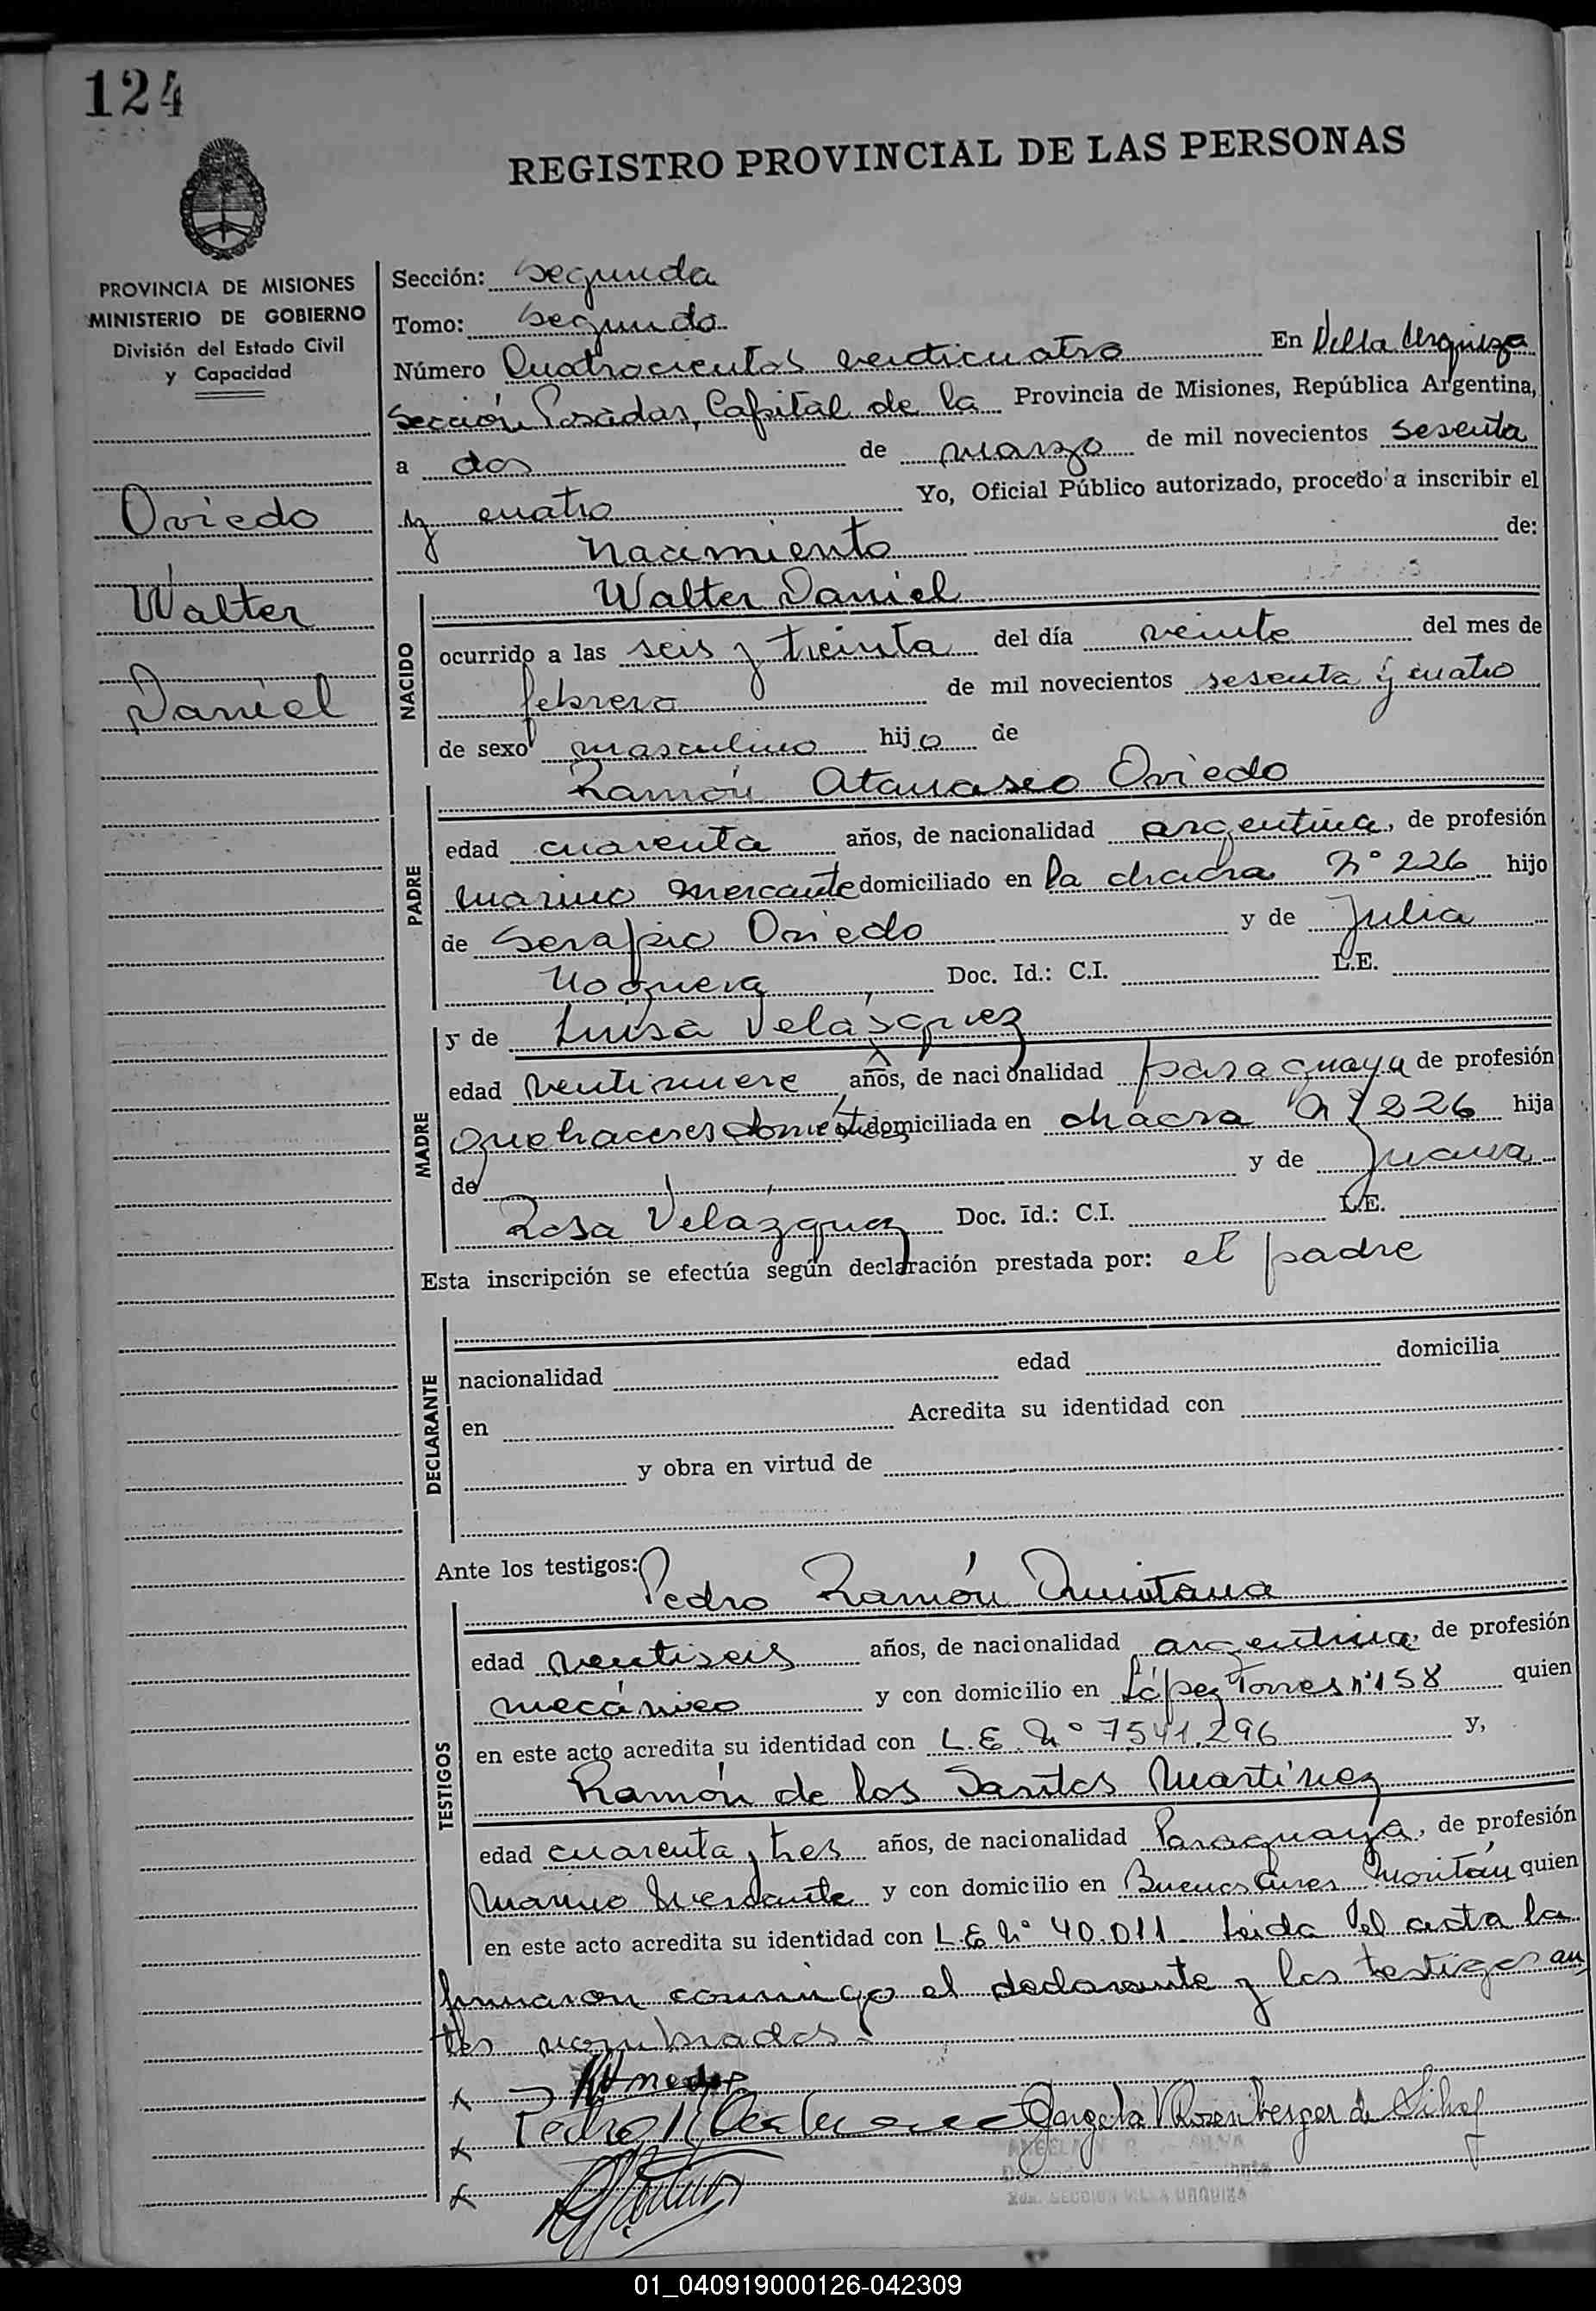 124
REGISTRO PROVINCIAL DE LAS PERSONAS
PROVINCIA DE MISIONES
MINISTERIO DE GOBIERNO
División del Estado Civil
y Capacidad
Oviedo
Walter
Daniel
Sección: Segunda
Tomo: Segundo
Número Cuatrocientos venticuatro En Villa Urquiza
Sección Posadas, Capital de la Provincia de Misiones, República Argentina,
a dos de marzo de mil novecientos sesenta
y cuatro Yo, Oficial Público autorizado, procedo a inscribir el
nacimiento de:
Walter Daniel
NACIDO
ocurrido a las seis y treinta del día veinte del mes de
febrero de mil novecientos sesenta y cuatro
de sexo masculino hijo de
Ramón Atanasio Oviedo
PADRE
edad cuarenta años, de nacionalidad argentina, de profesión
marino mercante domiciliado en la chacra Nº 226 hijo
de Serapio Oviedo y de Julia
Noguera Doc. Id.: C.I. L.E.
MADRE
y de Luisa Velásquez
edad ventinueve años, de nacionalidad paraguaya de profesión
quehaceres domésticos domiciliada en chacra Nº 226 hija
de y de Juana
Rosa Velázquez Doc. Id.: C.I. L.E.
Esta inscripción se efectúa según declaración prestada por: el padre
DECLARANTE
nacionalidad edad domicilia
en Acredita su identidad con
y obra en virtud de
Ante los testigos:
Pedro Ramón Quintana
TESTIGOS
edad ventiseis años, de nacionalidad argentina, de profesión
mecánico y con domicilio en López Torres nº 158 quien
en este acto acredita su identidad con L.E. Nº 7.541.296 y,
Ramón de los Santos Martínez
edad cuarenta y tres años, de nacionalidad Paraguaya, de profesión
Marino Mercante y con domicilio en Buenos Aires quien
en este acto acredita su identidad con L.E Nº 40.011 Leida el acta la
firmaron conmigo el declarante y los testigos an
tes nombrados.
Pedro
Angela V. Rosenberger de Silva
SECCION VILLA URQUIZA
01_040919000126-042309